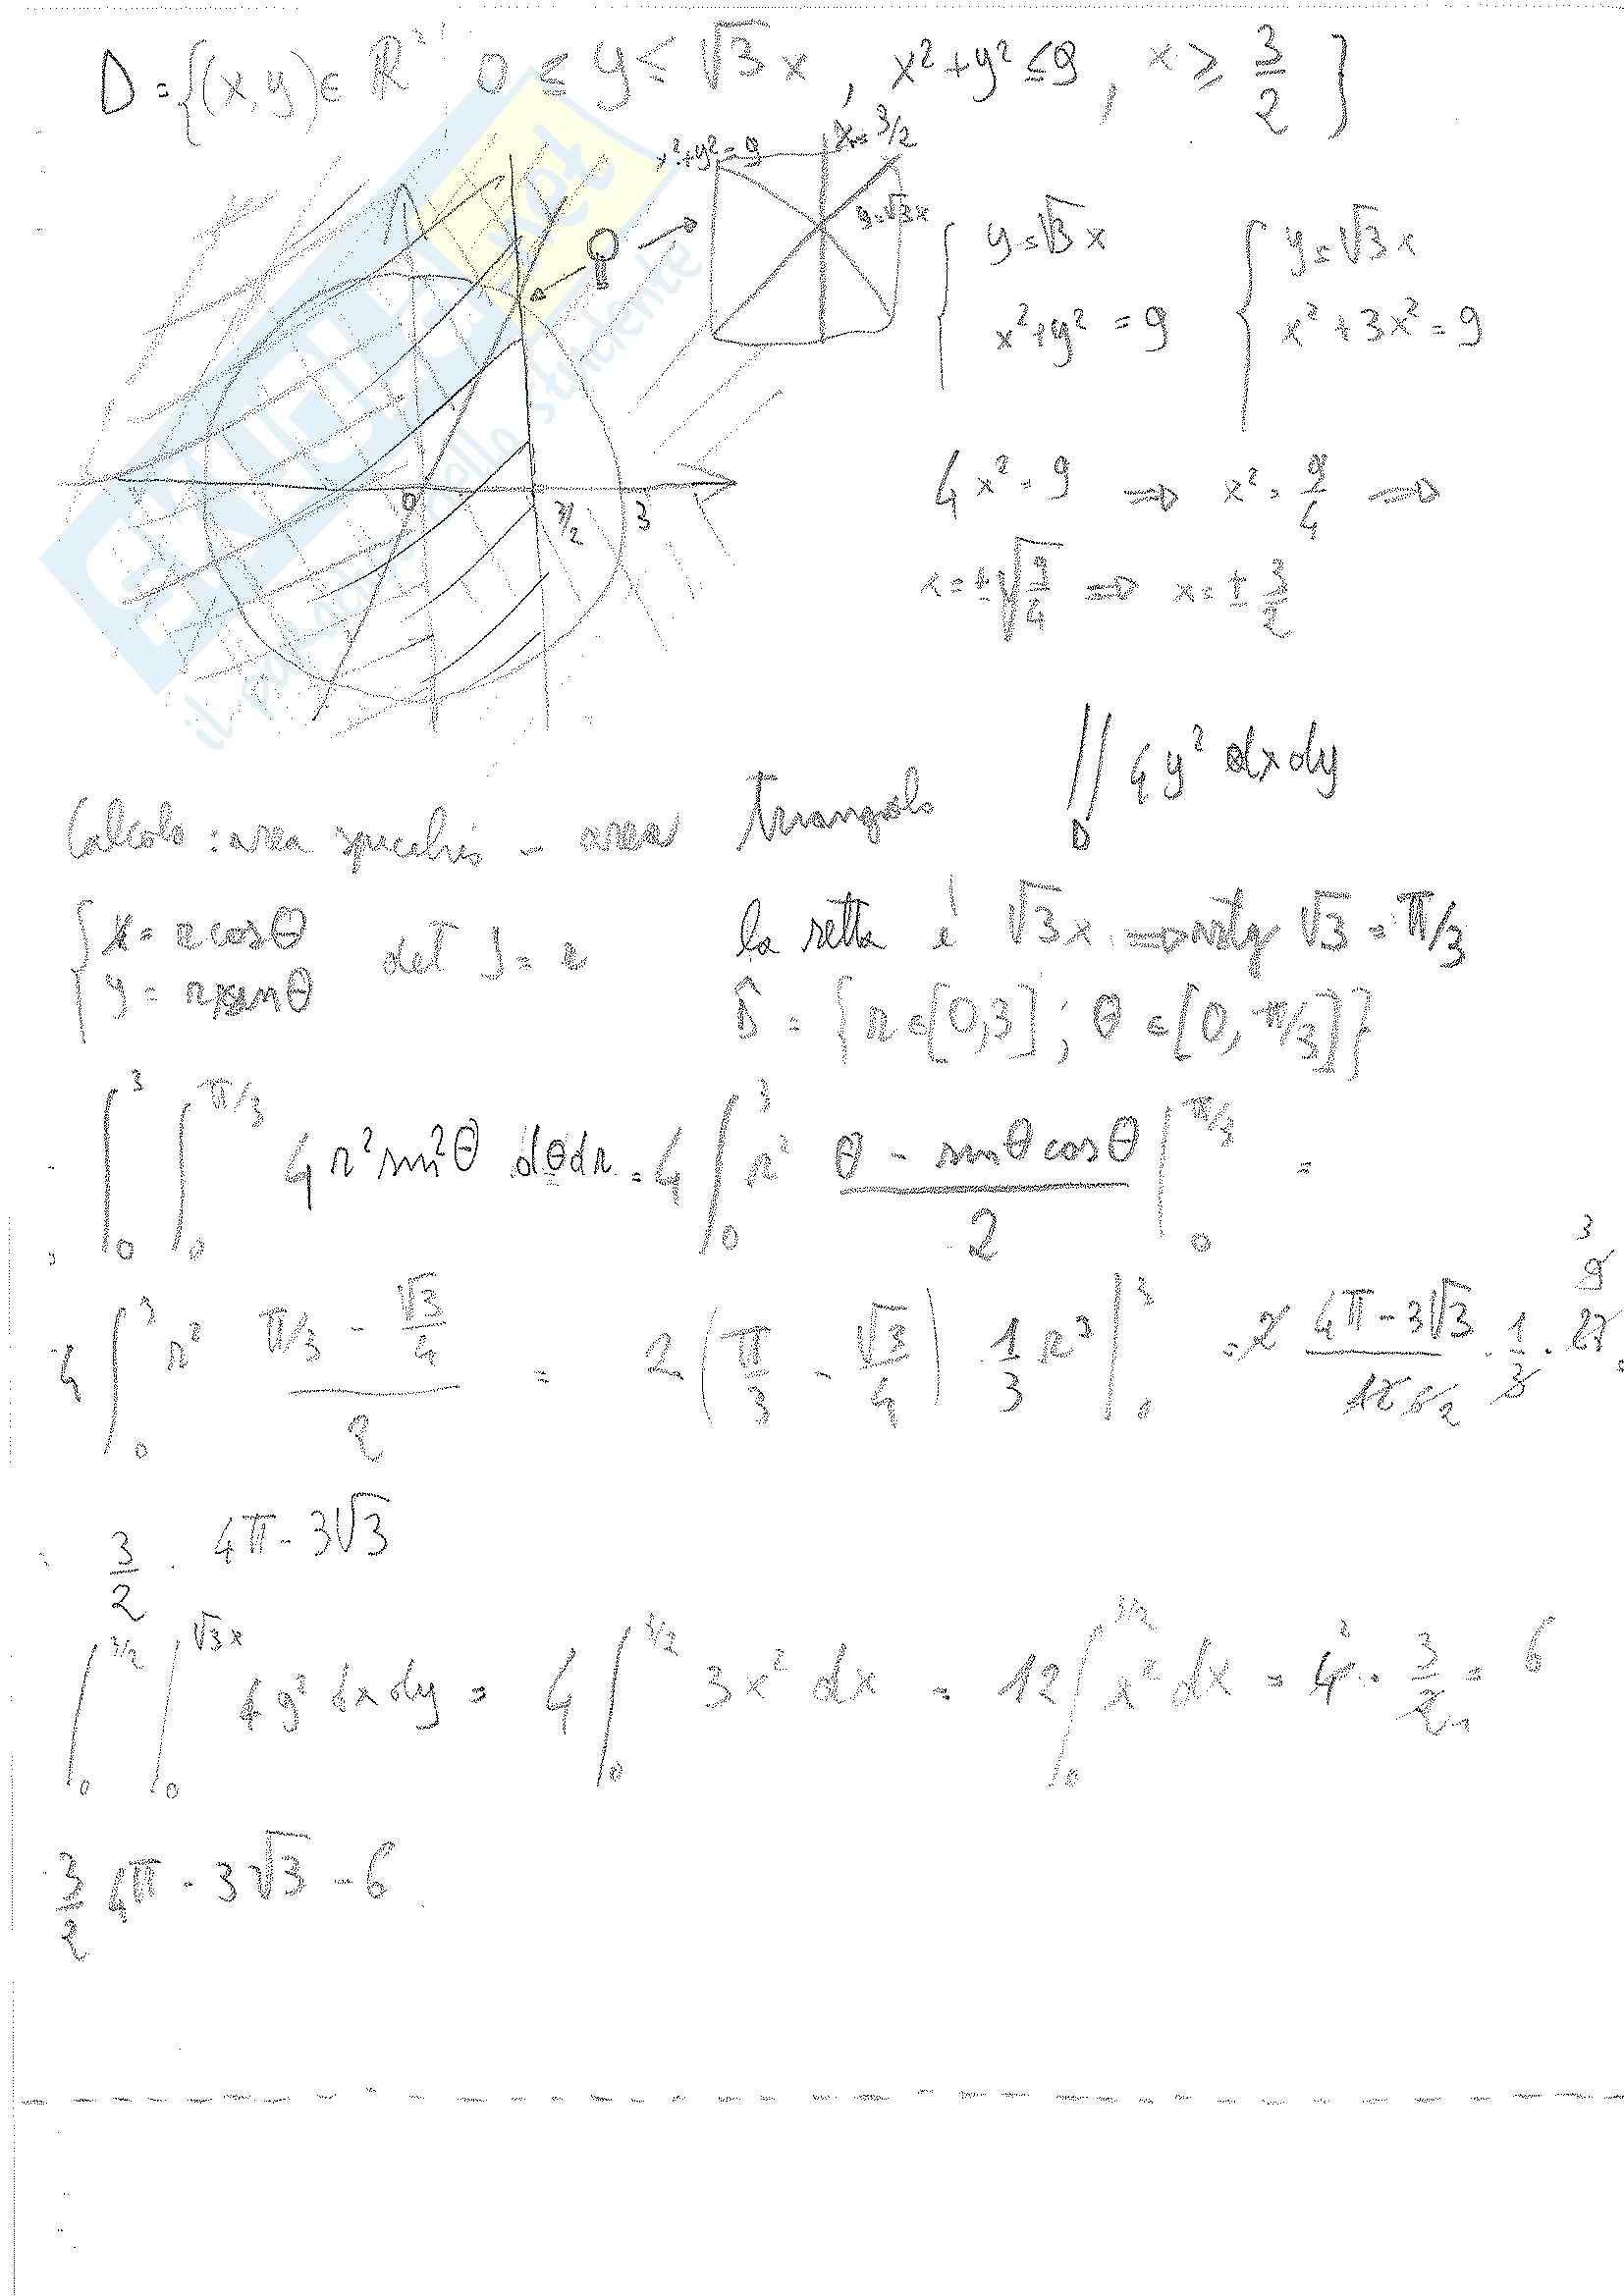 D = {(x,y) ∈ ℝ² : 0 ≤ y ≤ √3 x , x²+y² ≤ 9 , x ≥ 3/2 }
x²+y²=9
x=3/2
y=√3x
0
3/2
3
{ y=√3 x
x²+y² = 9
{ y=√3 x
x²+3x² = 9
4x² = 9 ⇒ x² = 9/4 ⇒
x=±√(9/4) ⇒ x=± 3/2
SKUOLA.net
il paradiso dello studente
∬_D 4y² dx dy
Calcolo : area spicchio - area triangolo
{ x = r cosθ
y = r sinθ
det J = r
la retta è √3x ⇒ arctg √3 = π/3
D̂ = { r ∈ [0,3] ; θ ∈ [0, π/3] }
= ∫₀³ ∫₀^(π/3) 4r² sin²θ dθ dr = 4 ∫₀³ r² (θ - sinθ cosθ)/2 |₀^(π/3) =
= 4 ∫₀³ r² (π/3 - √3/4)/2 = 2 (π/3 - √3/4) · 1/3 r³ |₀³ = 2 (4π-3√3)/12 6 2 · 1/3 · 27 9 3 =
= 3/2 · 4π-3√3
∫₀^(3/2) ∫₀^(√3x) 4y² dx dy = 4 ∫₀^(3/2) 3x² dx = 12 ∫₀^(3/2) x² dx = 4 2 · 3/2 1 = 6
3/2 4π - 3√3 - 6